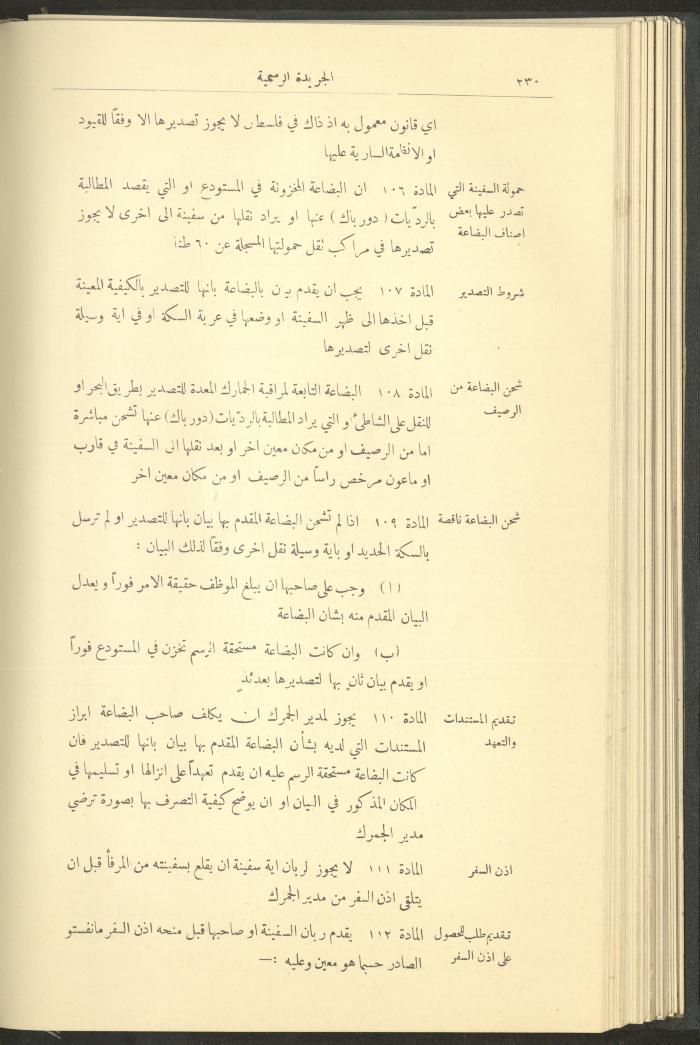 ٢٣٠ الجريدة الرسمية
اي قانون معمول به اذ ذاك في فلسطين لا يجوز تصديرها الا وفقاً للقيود
او الانظمة السارية عليها
حمولة السفينة التي
تصدر عليها بعض
اصناف البضاعة
المادة ١٠٦ ان البضاعة المخزونة في المستودع او التي يقصد المطالبة
بالرديّات (دورباك) عنها او يراد نقلها من سفينة الى اخرى لا يجوز
تصديرها في مراكب تقل حمولتها المسجلة عن ٦٠ طناً
شروط التصدير
المادة ١٠٧ يجب ان يقدم بيان بالبضاعة بانها للتصدير بالكيفية المعينة
قبل اخذها الى ظهر السفينة او وضعها في عربة السكة او في اية وسيلة
نقل اخرى لتصديرها
شحن البضاعة من
الرصيف
المادة ١٠٨ البضاعة التابعة لمراقبة الجمارك المعدة للتصدير بطريق البحر او
للنقل على الشاطئ او التي يراد المطالبة بالرديّات (دورباك) عنها تشحن مباشرة
اما من الرصيف او من مكان معين اخر او بعد نقلها الى السفينة في قارب
او ماعون مرخص راساً من الرصيف او من مكان معين اخر
شحن البضاعة ناقصة
المادة ١٠٩ اذا لم تشحن البضاعة المقدم بها بيان بانها للتصدير او لم ترسل
بالسكة الحديد او باية وسيلة نقل اخرى وفقاً لذلك البيان :
(١) وجب على صاحبها ان يبلغ الموظف حقيقة الامر فوراً ويعدل
البيان المقدم منه بشان البضاعة
(ب) وان كانت البضاعة مستحقة الرسم تخزن في المستودع فوراً
او يقدم بيان ثانٍ بها لتصديرها بعدئذٍ
تقديم المستندات
والتعهد
المادة ١١٠ يجوز لمدير الجمرك ان يكلف صاحب البضاعة ابراز
المستندات التي لديه بشأن البضاعة المقدم بها بيان بانها للتصدير فان
كانت البضاعة مستحقة الرسم عليه ان يقدم تعهداً على انزالها او تسليمها في
المكان المذكور في البيان او ان يوضح كيفية التصرف بها بصورة ترضي
مدير الجمرك
اذن السفر
المادة ١١١ لا يجوز لربان اية سفينة ان يقلع بسفينته من المرفأ قبل ان
يتلقى اذن السفر من مدير الجمرك
تقديم طلب للحصول
على اذن السفر
المادة ١١٢ يقدم ربان السفينة او صاحبها قبل منحه اذن السفر مانفستو
الصادر حسبما هو معين وعليه :—